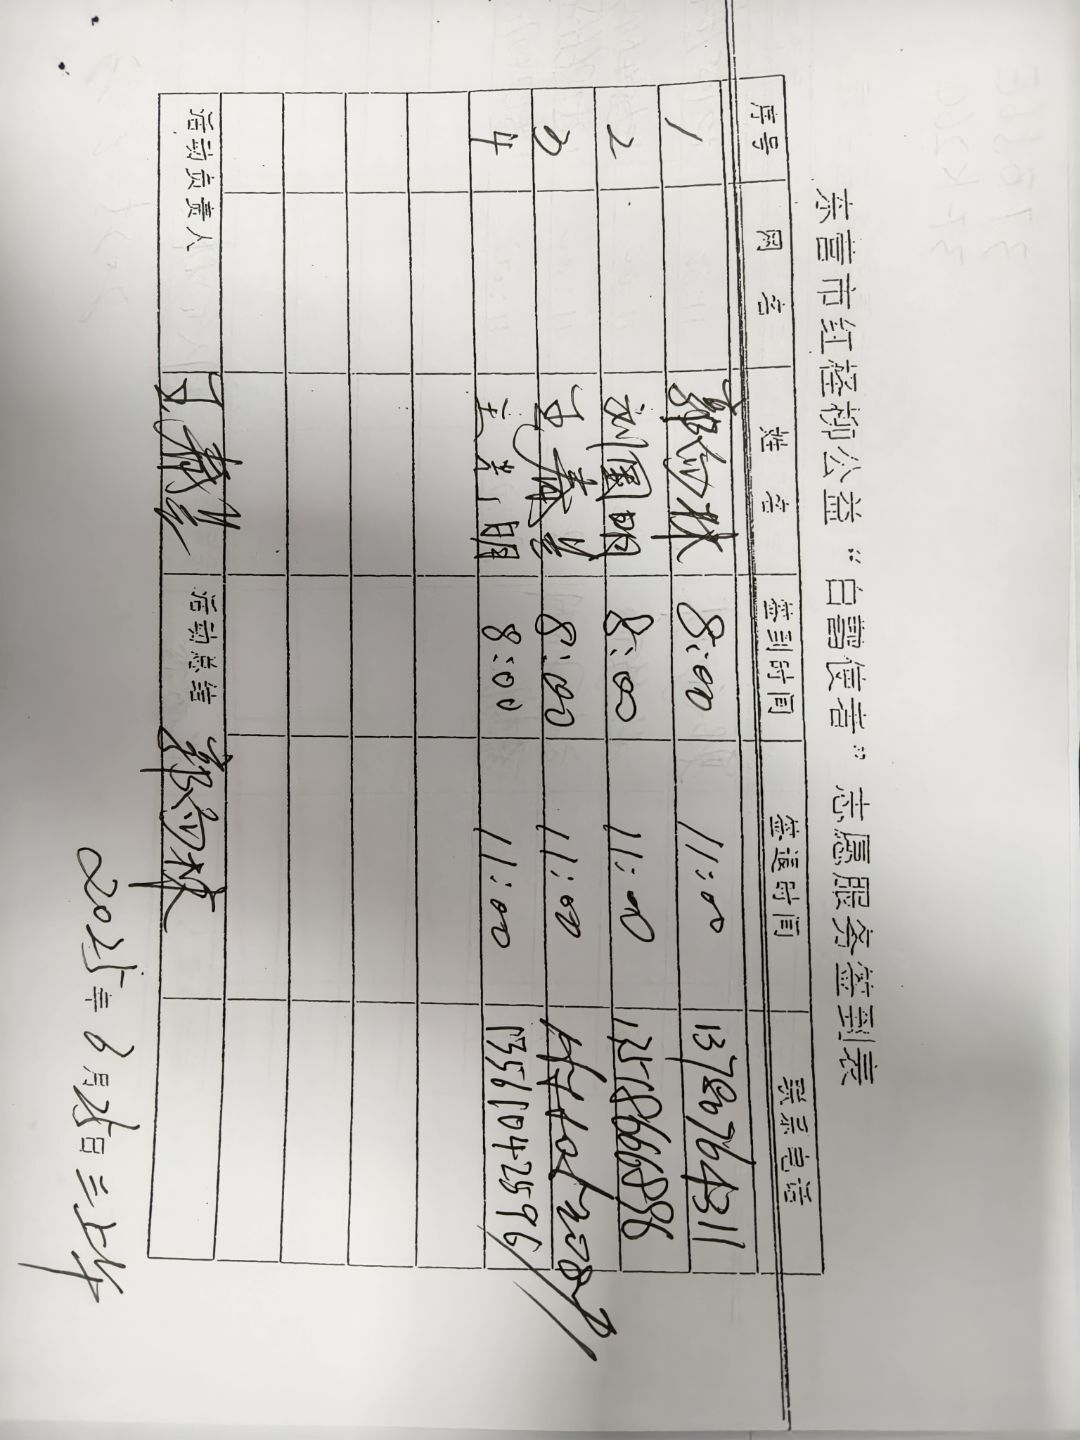 东营市红柽柳公益“白露使者”志愿服务签到表
序号 网名 姓名 签到时间 签退时间 联系电话
1 8:00 11:00 13780764311
2 刘国明 8:00 11:00
3 王春 8:00 11:00
4 王 明 8:00 11:00 13561042596
活动负责人 王 活动总结
2025年6月25日三上午